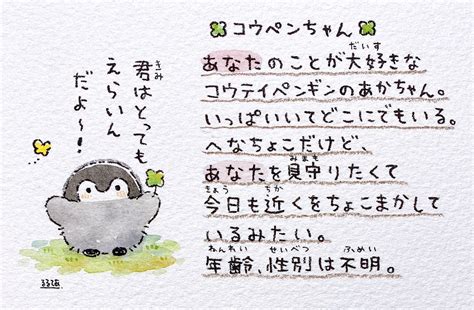 コウペンちゃん
あなたのことが大好きな
コウテイペンギンのあかちゃん。
いっぱいいてどこにでもいる。
へなちょこだけど、
あなたを見守りたくて
今日も近くをちょこまかして
いるみたい。
年齢、性別は不明。
君はとっても
えらいん
だよ〜!
るるてあ